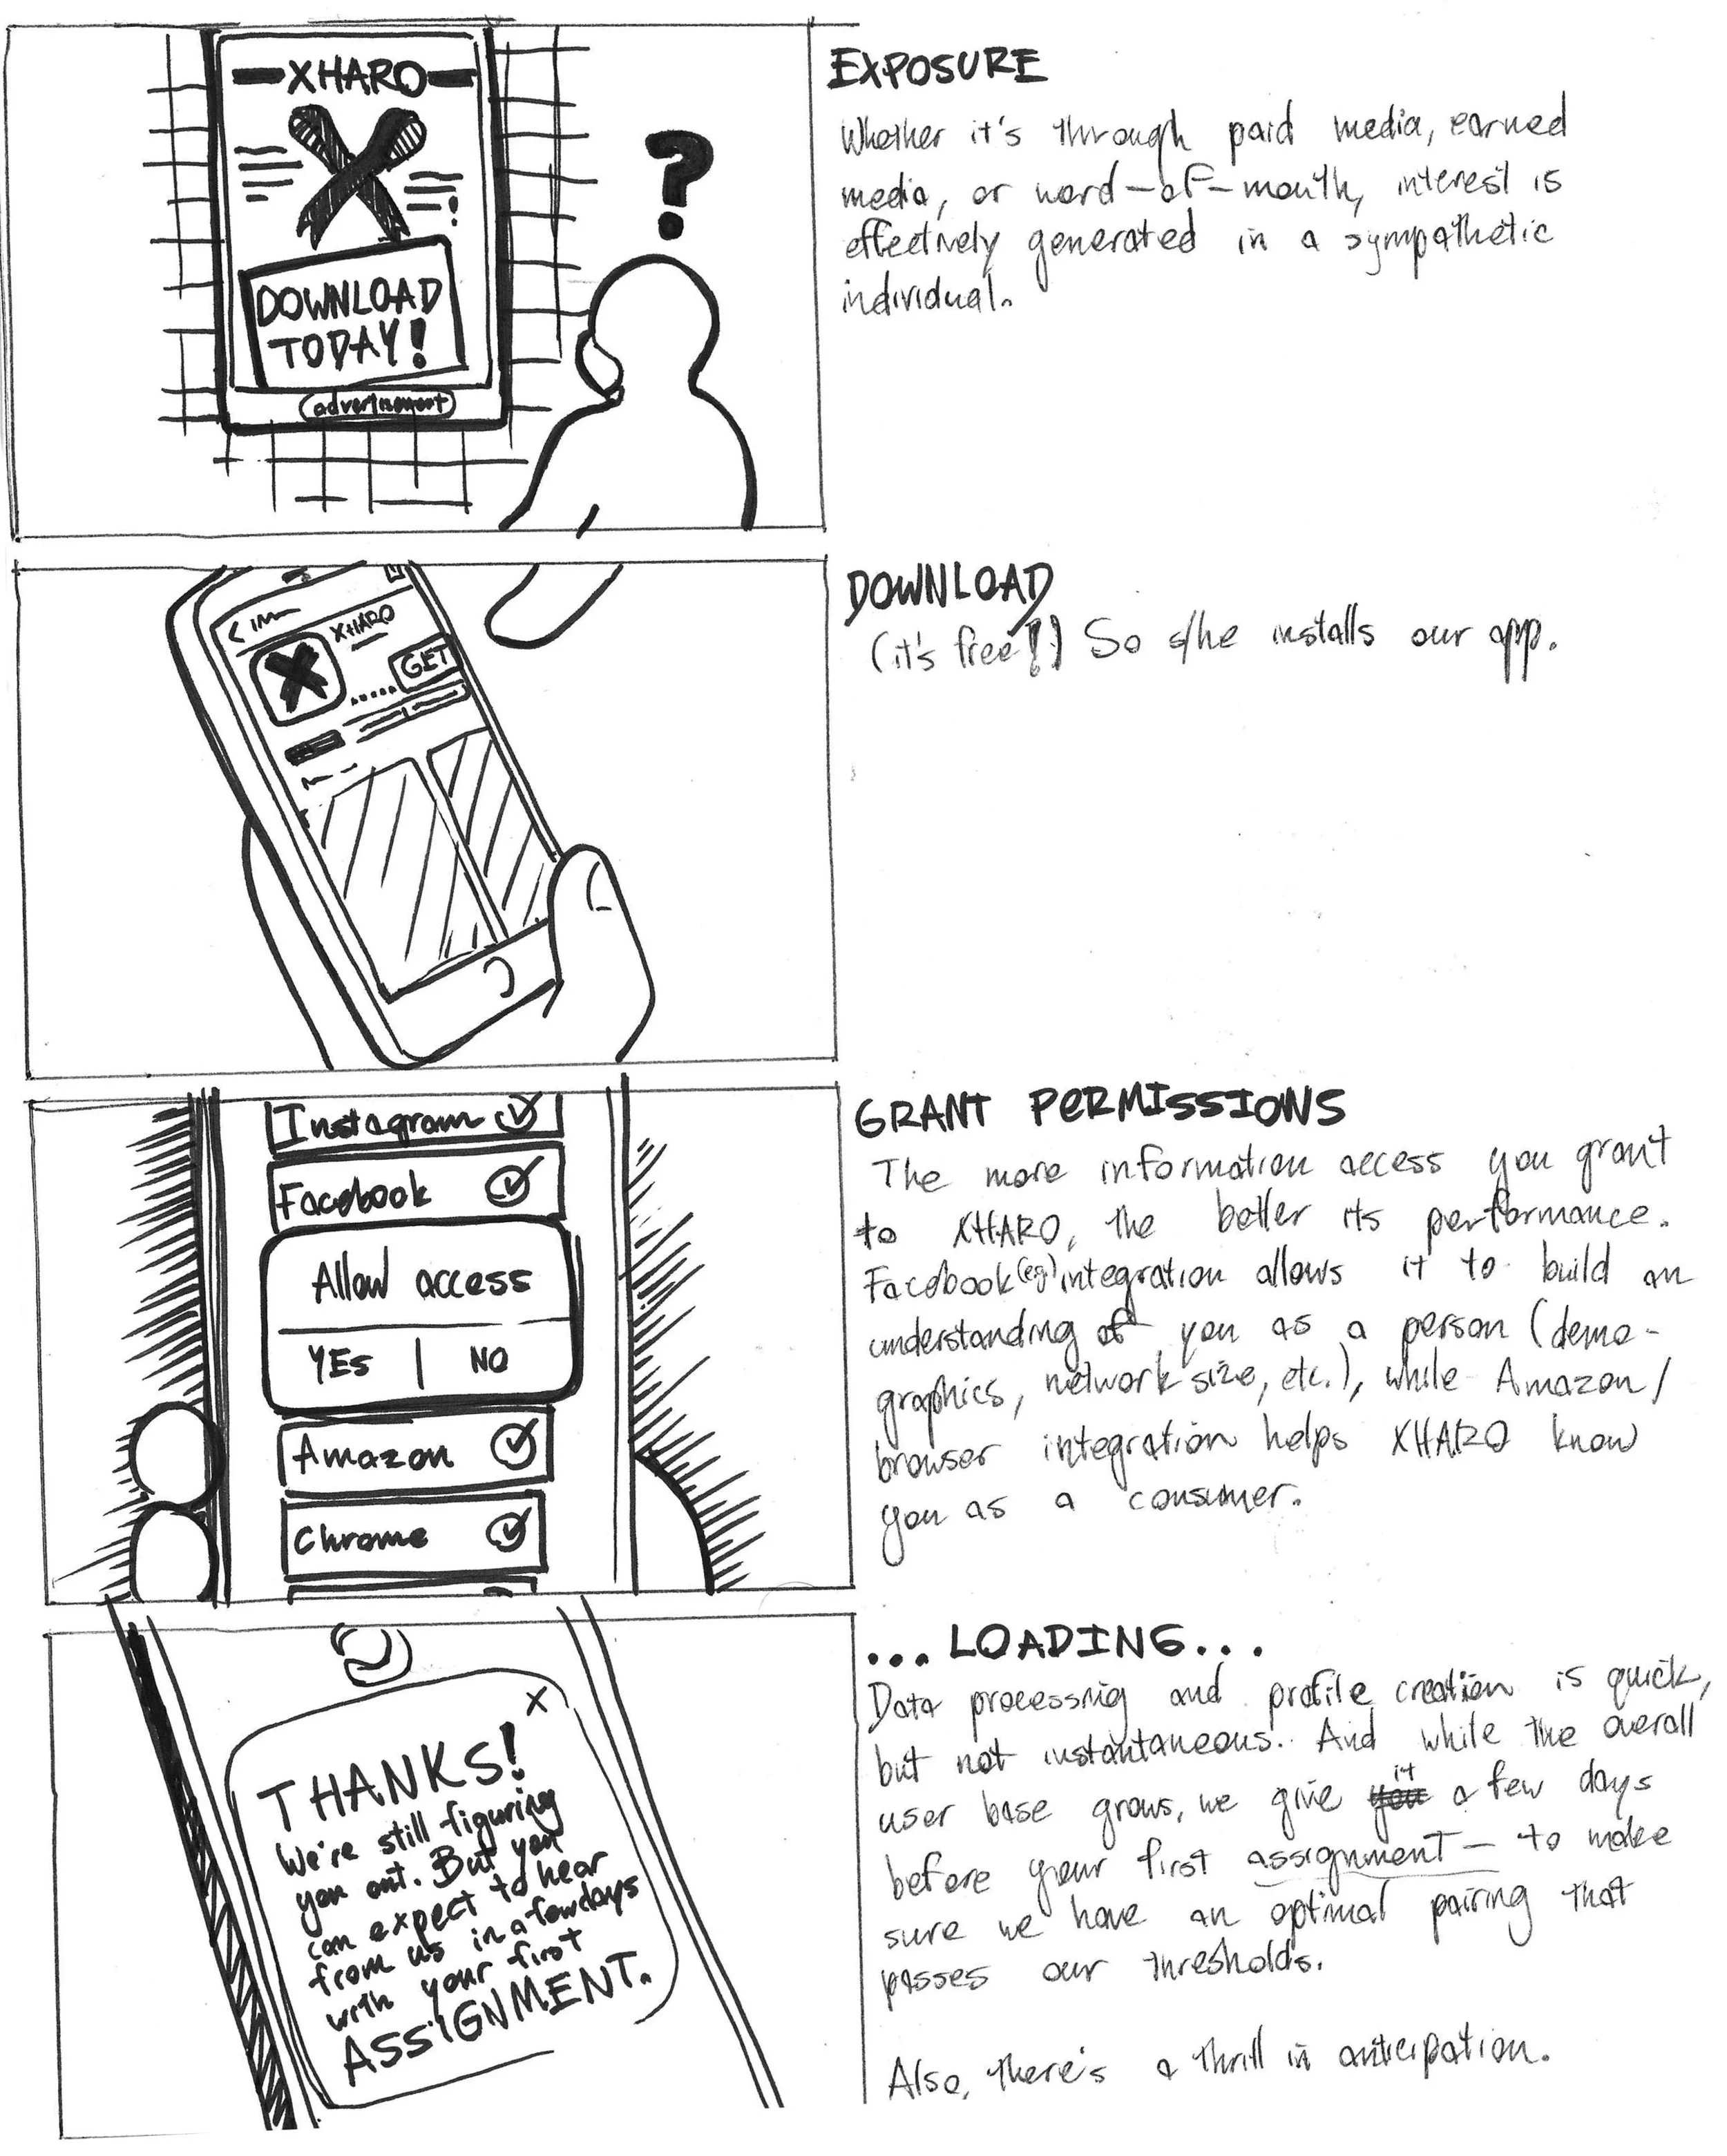 XHARO
DOWNLOAD
TODAY!
advertisement
?
EXPOSURE
Whether it's through paid media, earned
media, or word-of-mouth, interest is
effectively generated in a sympathetic
individual.
XHARO
GET
DOWNLOAD
(it's free!) So s/he installs our app.
Instagram
Facebook
Allow access
YES | NO
Amazon
Chrome
GRANT PERMISSIONS
The more information access you grant
to XHARO, the better its performance.
Facebook (eg) integration allows it to build an
understanding of you as a person (demo-
graphics, network size, etc.), while Amazon/
browser integration helps XHARO know
you as a consumer.
X
THANKS!
We're still figuring
you out. But you
can expect to hear
from us in a few days
with your first
ASSIGNMENT.
...LOADING...
Data processing and profile creation is quick,
but not instantaneous. And while the overall
user base grows, we give you it a few days
before your first assignment - to make
sure we have an optimal pairing that
passes our thresholds.
Also, there's a thrill in anticipation.